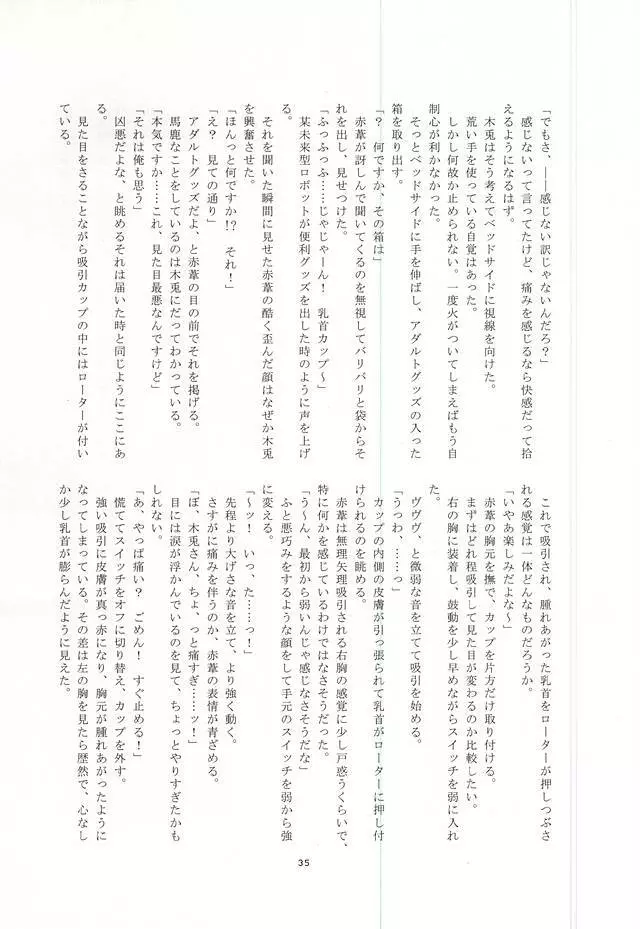 「でもさ、――感じない訳じゃないんだろ？」
感じないって言ってたけど、痛みを感じるなら快感だって拾
えるようになるはず。
木兎はそう考えてベッドサイドに視線を向けた。
荒い手を使っている自覚はあった。
しかし何故か止められない。一度火がついてしまえばもう自
制心が利かなかった。
そっとベッドサイドに手を伸ばし、アダルトグッズの入った
箱を取り出す。
「？　何ですか、その箱は」
赤葦が訝しんで聞いてくるのを無視してバリバリと袋からそ
れを出し、見せつけた。
「ふっふっふ……じゃじゃーん！　乳首カップ～」
某未来型ロボットが便利グッズを出した時のように声を上げ
る。
それを聞いた瞬間に見せた赤葦の酷く歪んだ顔はなぜか木兎
を興奮させた。
「ほんっと何ですか!?　それ！」
「え？　見ての通り」
アダルトグッズだよ、と赤葦の目の前でそれを掲げる。
馬鹿なことをしているのは木兎にだってわかっている。
「本気ですか……これ、見た目最悪なんですけど」
「それは俺も思う」
凶悪だよな、と眺めるそれは届いた時と同じようにここにあ
る。
見た目をさることながら吸引カップの中にはローターが付い
ている。
これで吸引され、腫れあがった乳首をローターが押しつぶさ
れる感覚は一体どんなものだろうか。
「いやあ楽しみだよな～」
赤葦の胸元を撫で、カップを片方だけ取り付ける。
まずはどれ程吸引して見た目が変わるのか比較したい。
右の胸に装着し、鼓動を少し早めながらスイッチを弱に入れ
た。
ヴヴヴ、と微弱な音を立てて吸引を始める。
「うっわ、……っ」
カップの内側の皮膚が引っ張られて乳首がローターに押し付
けられるのを眺める。
赤葦は無理矢理吸引される右胸の感覚に少し戸惑うくらいで、
特に何かを感じているわけではなさそうだった。
「う～ん、最初から弱いんじゃ感じなさそうだな」
ふと悪巧みをするような顔をして手元のスイッチを弱から強
に変える。
「～ッ！　いっ、た……っ！」
先程より大げさな音を立て、より強く動く。
さすがに痛みを伴うのか、赤葦の表情が青ざめる。
「ぼ、木兎さん、ちょ、っと痛すぎ……ッ！」
目には涙が浮かんでいるのを見て、ちょっとやりすぎたかも
しれない。
「あ、やっぱ痛い？　ごめん！　すぐ止める！」
慌ててスイッチをオフに切り替え、カップを外す。
強い吸引に皮膚が真っ赤になり、胸元が腫れあがったように
なってしまっている。その差は左の胸を見たら歴然で、心なし
か少し乳首が膨らんだように見えた。
35